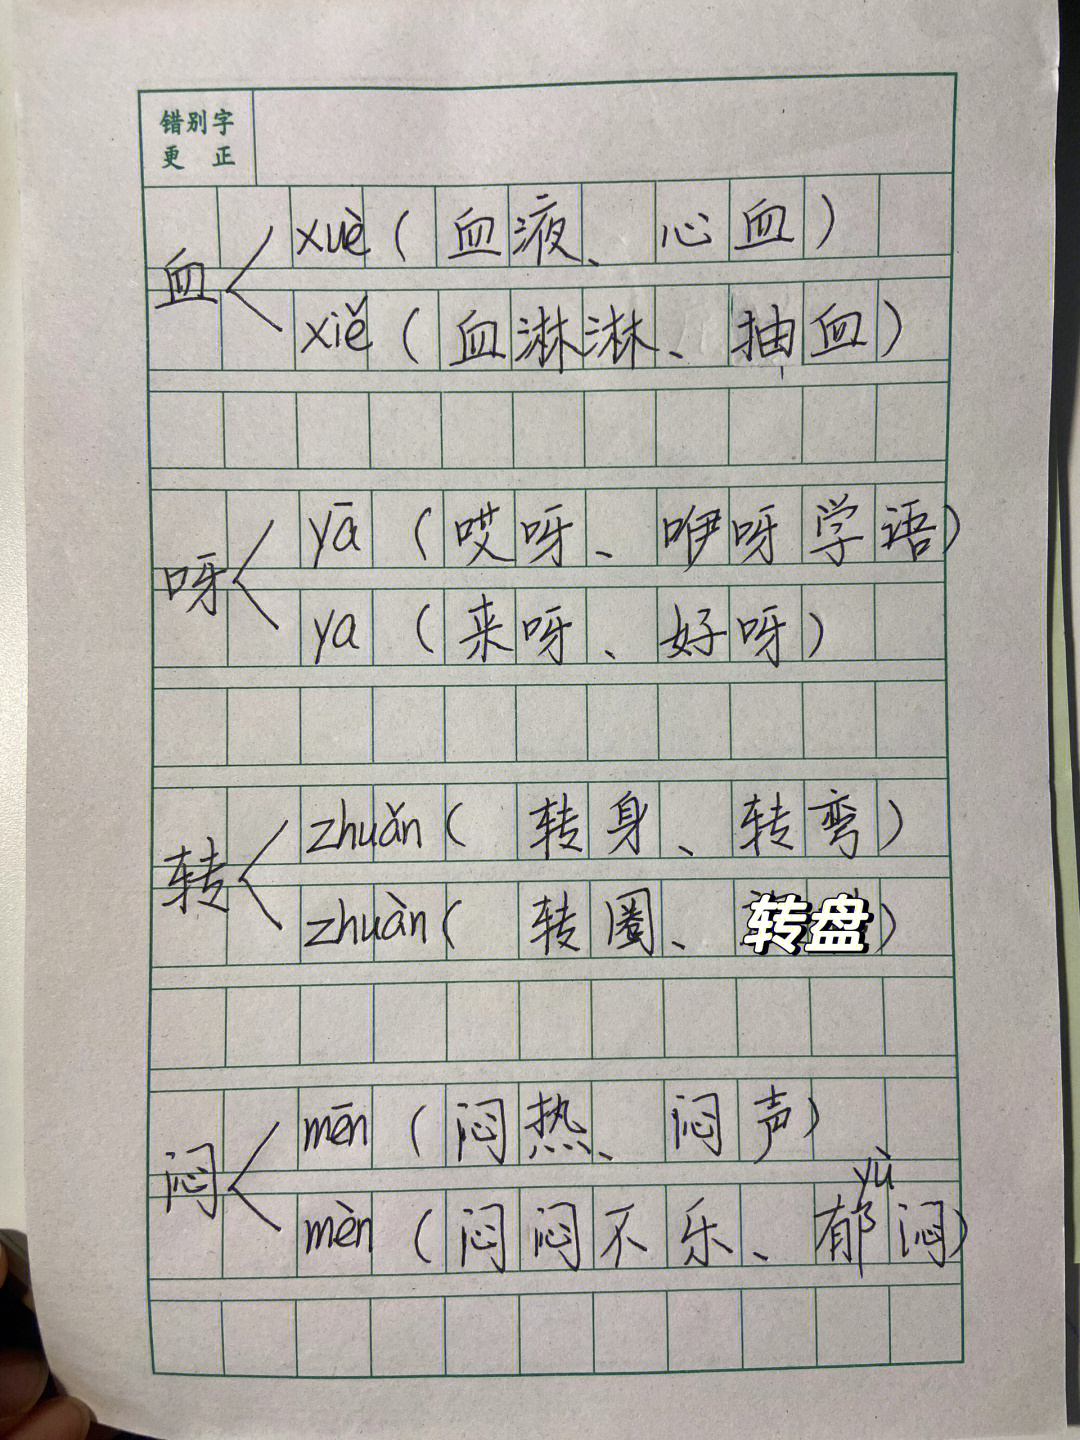 错别字
更 正
xuè（血液、心血）
血
xiě（血淋淋、抽血）
yā（哎呀、咿呀学语）
呀
ya（来呀、好呀）
zhuǎn（转身、转弯）
转
zhuàn（转圈、转盘）
mēn（闷热、闷声）
闷
yù
mèn（闷闷不乐、郁闷）